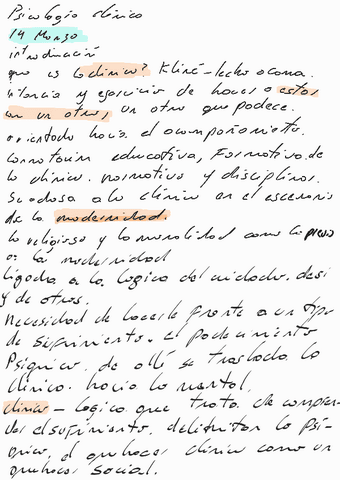 Psicología clínica
14 Marzo
introducción
que es lo clínico? Kliné - lecho o cama.
instancia y ejercicio de hacer o estar
con un otro, un otro que padece.
orientado hacia el acompañamiento.
connotación educativa, Formativa de
lo clínico. normativo y disciplinar.
Se adosa a lo clínico en el escenario
de la modernidad.
lo religioso y la moralidad como
a la modernidad
ligado a la lógica del cuidado. de si
y de otros.
Necesidad de hacerle frente a un tipo
de sufrimiento. el padecimiento
Psíquico. de allí se traslada lo
clínico. hacia lo mental.
clínico - lógica que trata de compren-
der el sufrimiento. delimitar lo psí-
quico, el quehacer clínico como un
quehacer social.